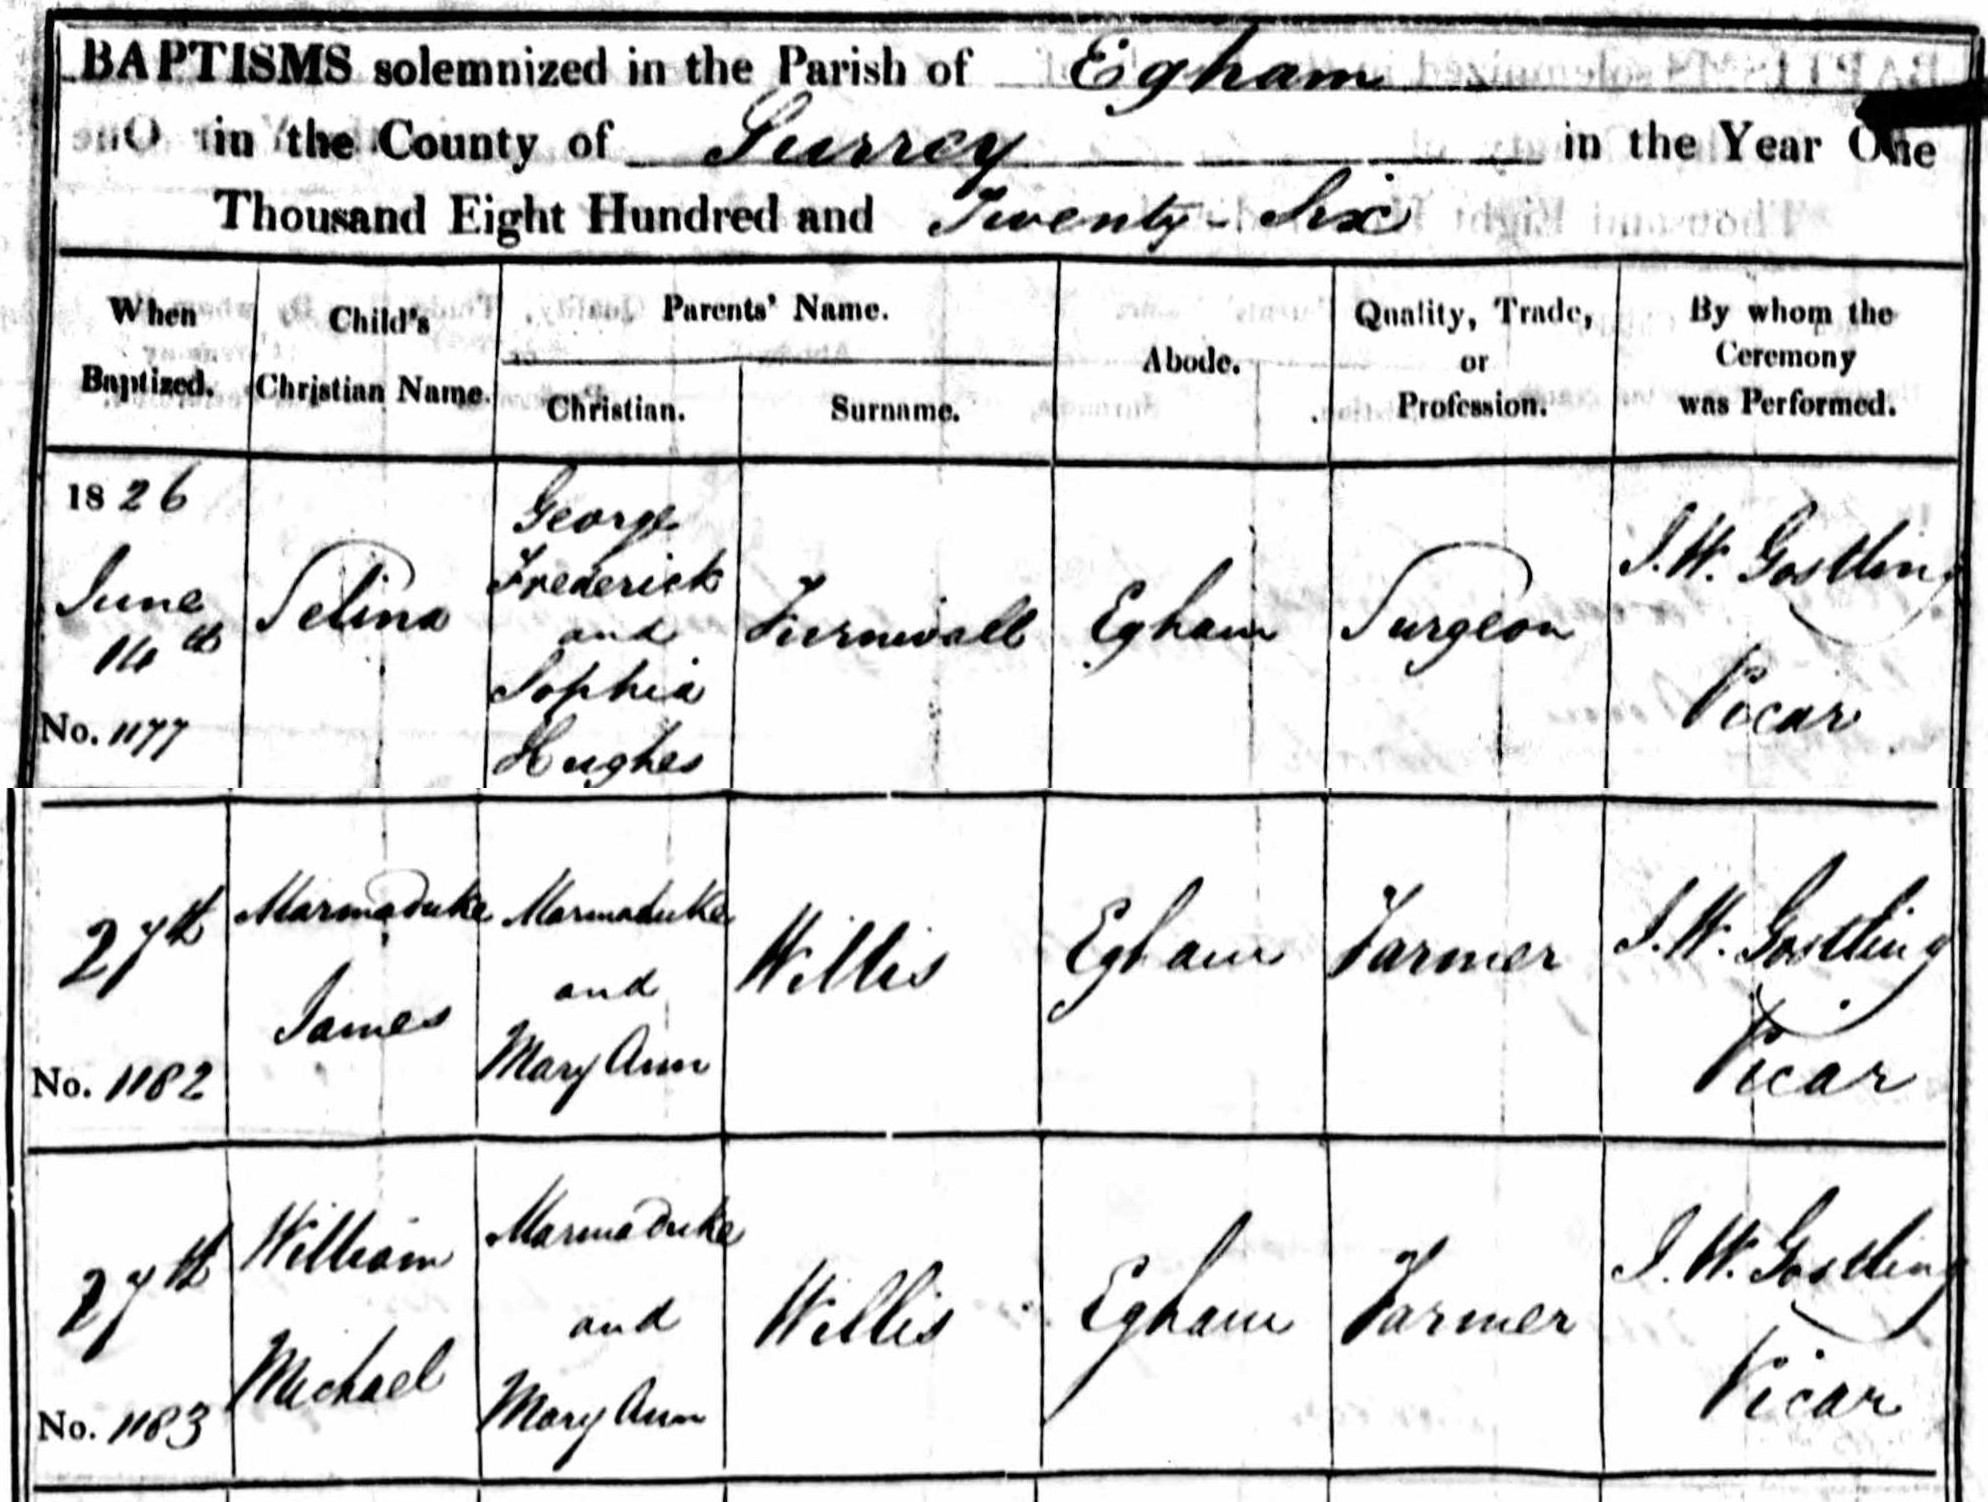 BAPTISMS solemnized in the Parish of Egham
in the County of Surrey in the Year One
Thousand Eight Hundred and Twenty-Six
When Baptized.
Child's Christian Name.
Parents' Name.
Christian.
Surname.
Abode.
Quality, Trade, or Profession.
By whom the Ceremony was Performed.
1826
June
14th
No. 1177
Selina
George
Frederick
and
Sophia
Hughes
Furnivall
Egham
Surgeon
J. W. Gostling
Vicar
27th
No. 1182
Marmaduke
James
Marmaduke
and
Mary Ann
Willis
Egham
Farmer
J. W. Gostling
Vicar
27th
No. 1183
William
Michael
Marmaduke
and
Mary Ann
Willis
Egham
Farmer
J. W. Gostling
Vicar